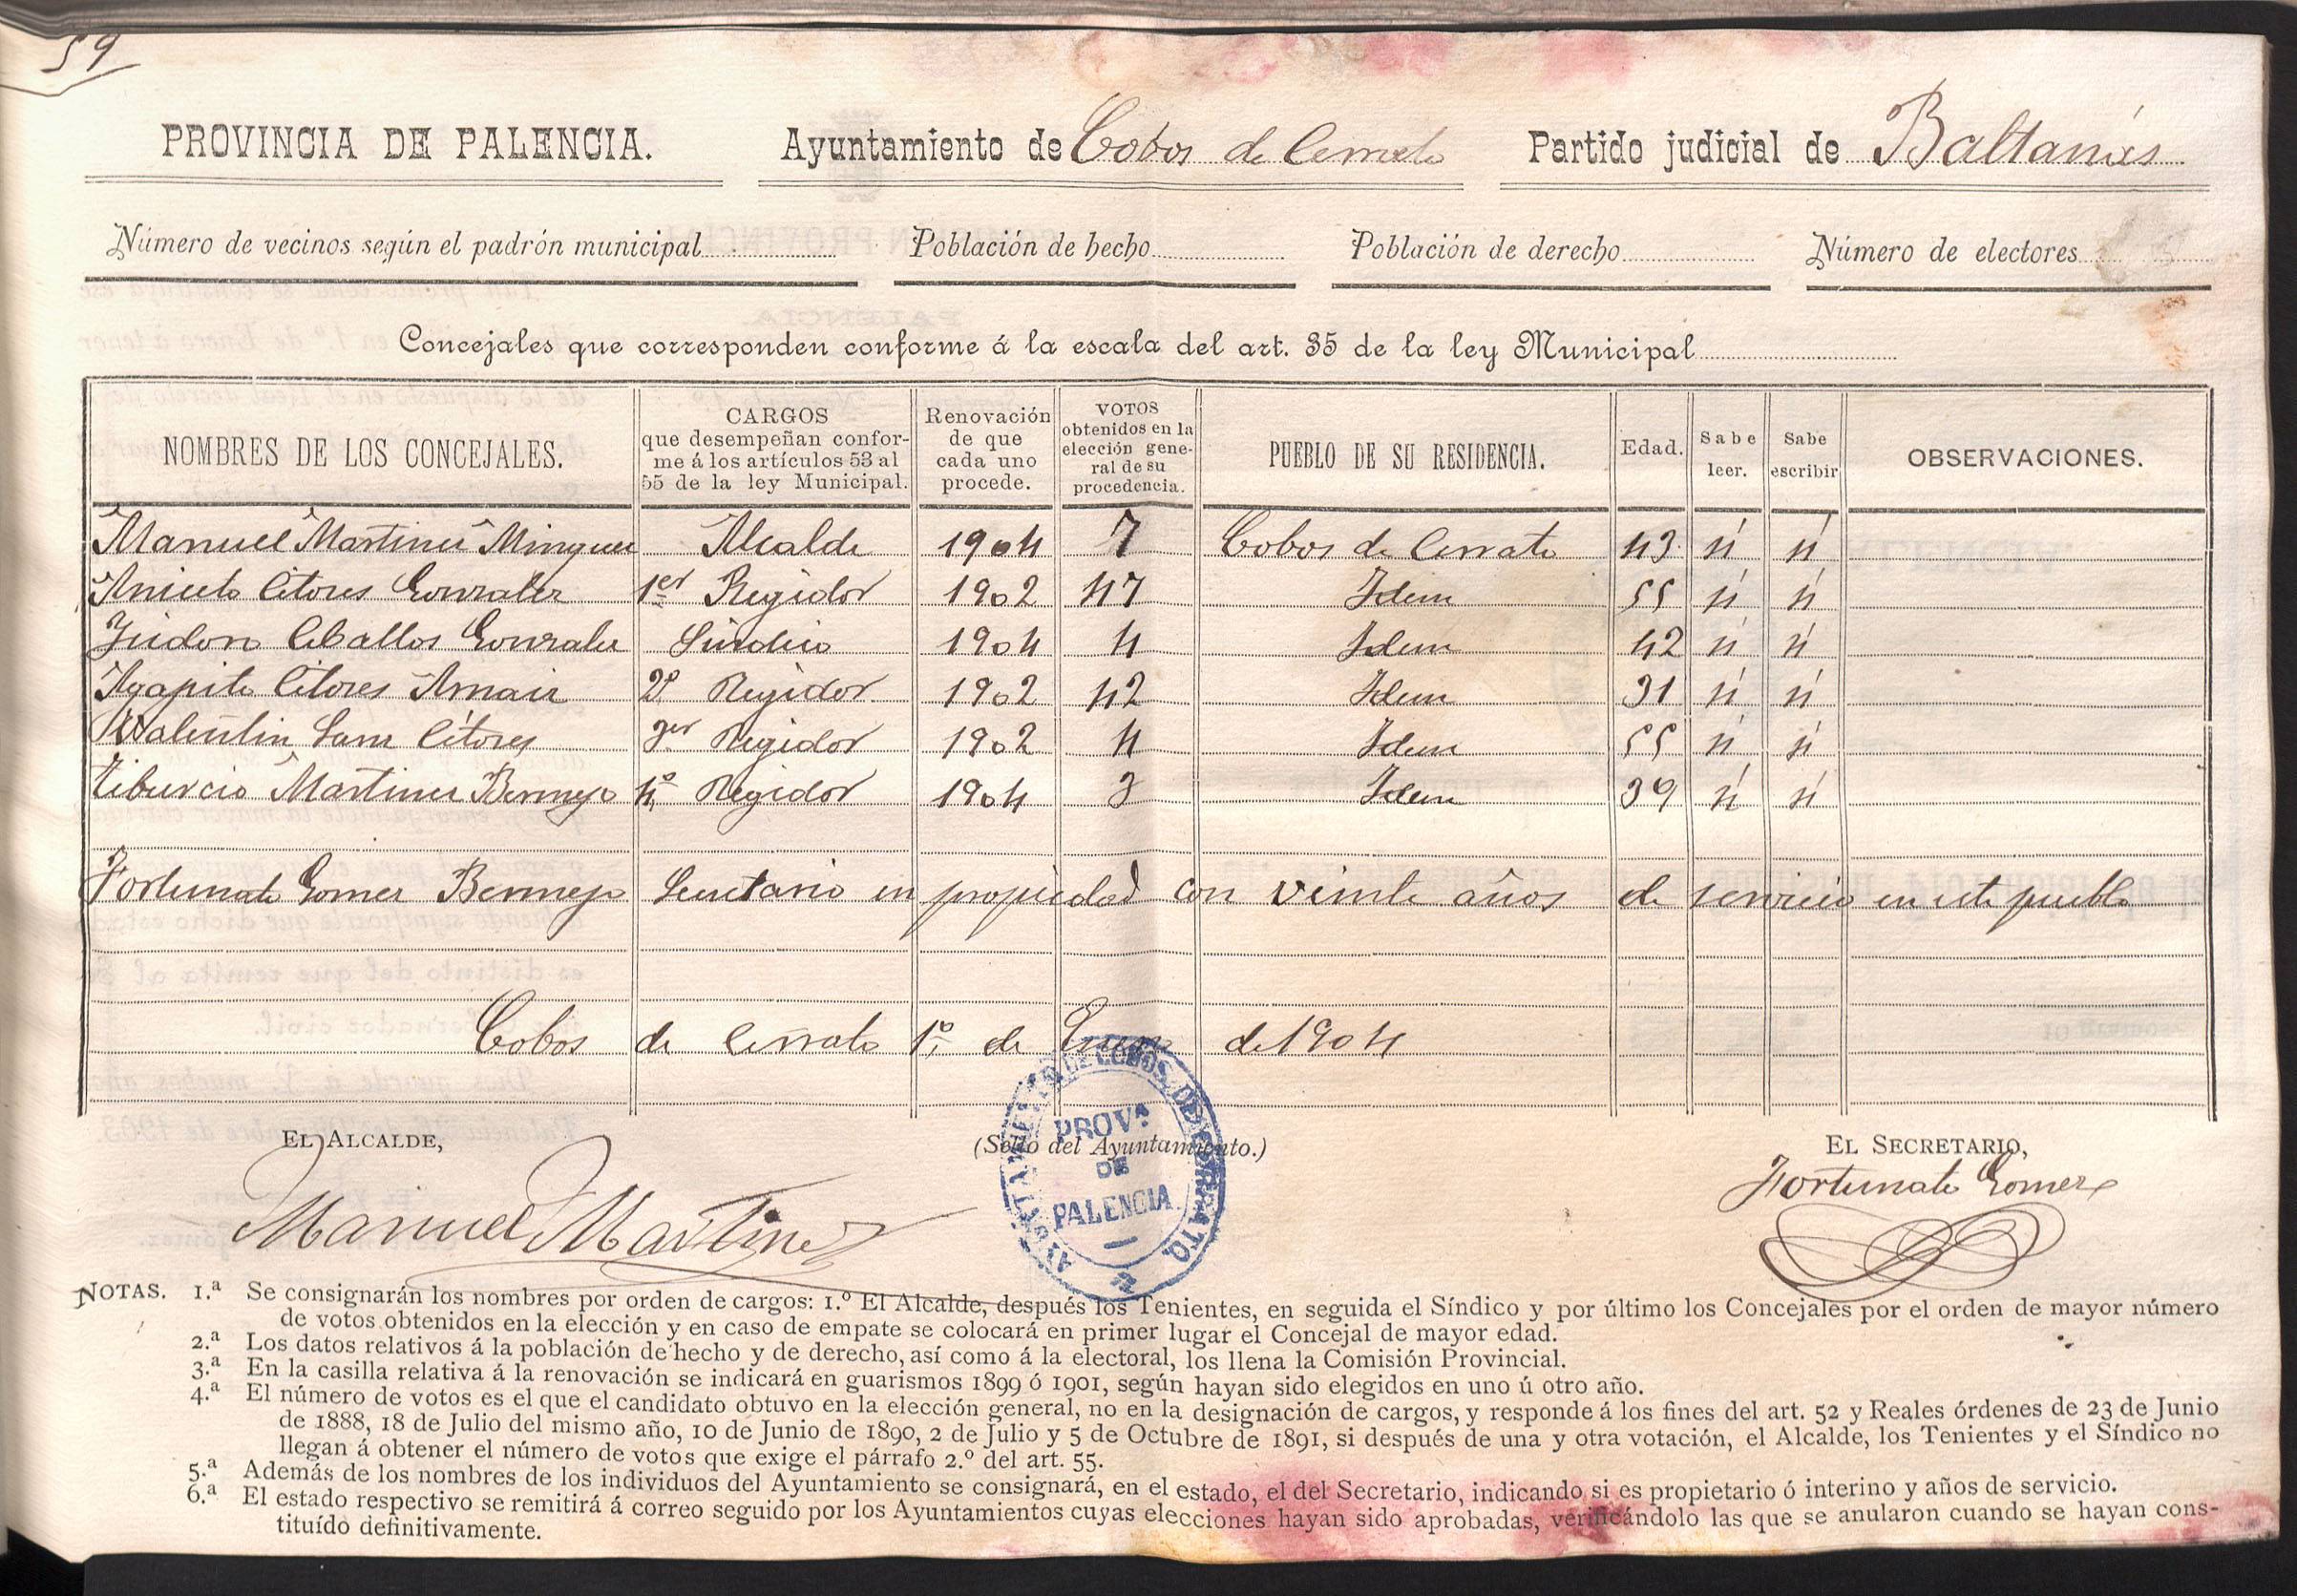 59
PROVINCIA DE PALENCIA. Ayuntamiento de Cobos de Cerrato Partido judicial de Baltanás
Número de vecinos según el padrón municipal Población de hecho Población de derecho Número de electores
Concejales que corresponden conforme á la escala del art. 35 de la ley Municipal
NOMBRES DE LOS CONCEJALES. CARGOS que desempeñan conforme á los artículos 53 al 55 de la ley Municipal. Renovación de que cada uno procede. VOTOS obtenidos en la elección general de su procedencia. PUEBLO DE SU RESIDENCIA. Edad. Sabe leer. Sabe escribir OBSERVACIONES.
Manuel Martinez Minguez Alcalde 1904 7 Cobos de Cerrato 43 si si
Aniceto Citores Gonzalez 1er Regidor 1902 47 Idem 55 si si
Isidoro Ceballos Gonzalez Sindico 1904 4 Idem 42 si si
Agapito Citores Arnaiz 2º Regidor 1902 42 Idem 31 si si
Valentin Sanz Citores 3er Regidor 1902 4 Idem 55 si si
Tiburcio Martinez Bermejo 4º Regidor 1904 3 Idem 39 si si
Fortunato Gomez Bermejo Secretario en propiedad con veinte años de servicio en este pueblo
Cobos de Cerrato 1º de Enero de 1904
EL ALCALDE, (Sello del Ayuntamiento.) EL SECRETARIO,
Manuel Martinez
AYUNTAMIENTO DE COBOS DE CERRATO.
PROVª
DE
PALENCIA
Fortunato Gomez
NOTAS. 1.ª Se consignarán los nombres por orden de cargos: 1.º El Alcalde, después los Tenientes, en seguida el Síndico y por último los Concejales por el orden de mayor número
de votos obtenidos en la elección y en caso de empate se colocará en primer lugar el Concejal de mayor edad.
2.ª Los datos relativos á la población de hecho y de derecho, así como á la electoral, los llena la Comisión Provincial.
3.ª En la casilla relativa á la renovación se indicará en guarismos 1899 ó 1901, según hayan sido elegidos en uno ú otro año.
4.ª El número de votos es el que el candidato obtuvo en la elección general, no en la designación de cargos, y responde á los fines del art. 52 y Reales órdenes de 23 de Junio
de 1888, 18 de Julio del mismo año, 10 de Junio de 1890, 2 de Julio y 5 de Octubre de 1891, si después de una y otra votación, el Alcalde, los Tenientes y el Síndico no
llegan á obtener el número de votos que exige el párrafo 2.º del art. 55.
5.ª Además de los nombres de los individuos del Ayuntamiento se consignará, en el estado, el del Secretario, indicando si es propietario ó interino y años de servicio.
6.ª El estado respectivo se remitirá á correo seguido por los Ayuntamientos cuyas elecciones hayan sido aprobadas, verificándolo las que se anularon cuando se hayan cons-
tituído definitivamente.